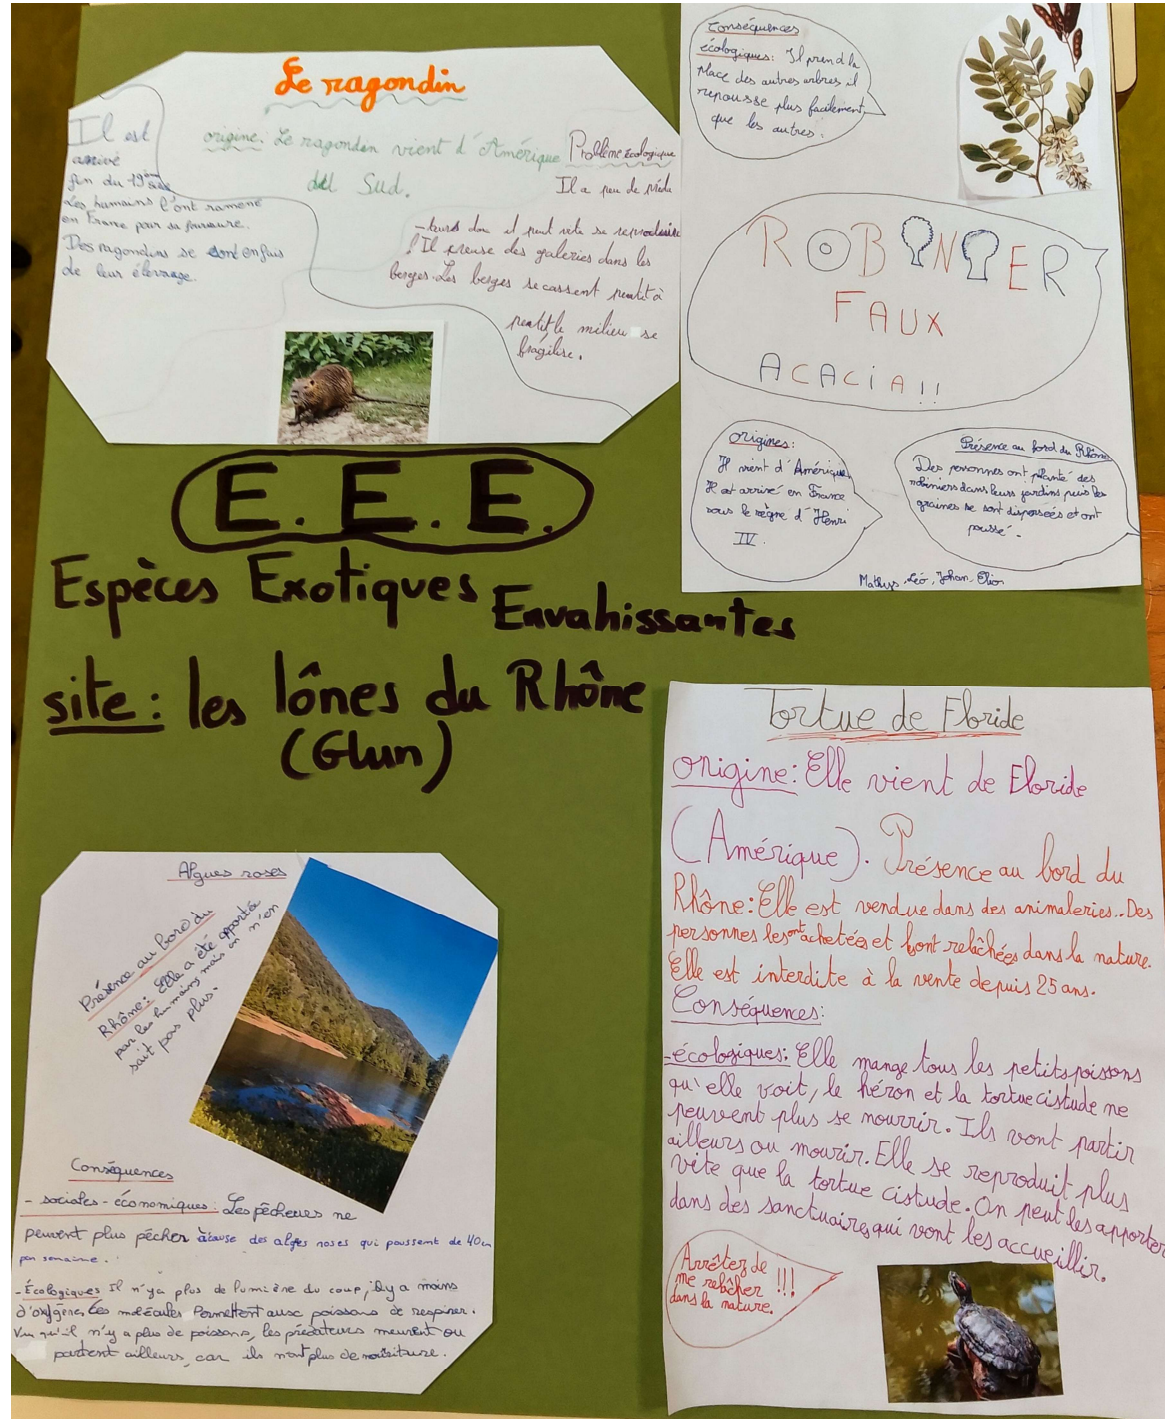 Le ragondin
Il est
arrivé
fin du 19ème siècle
Les humains l'ont ramené
en France pour sa fourrure.
Des ragondins se sont enfuis
de leur élevage.
origine: Le ragondin vient d'Amérique
del Sud.
Problème écologique
Il a peu de préda
-teurs donc il peut vite se reproduire
! Il creuse des galeries dans les
berges. Les berges se cassent peutit à
peutit, le milieu se
fragilise.
Conséquences
écologiques: Il prend la
place des autres arbres il
repousse plus facilement
que les autres.
ROBINIER
FAUX
ACACIA!!
origines:
Il vient d'Amérique
Il est arrivé en France
sous le règne d'Henri
IV.
Présence au bord du Rhône
Des personnes ont planté des
robiniers dans leurs jardins puis les
graines se sont dispersées et ont
poussé.
Mathys, Léo, Johan, Elion
E.E.E.
Espèces Exotiques Envahissantes
site: les lônes du Rhône
(Glun)
Algues roses
Présence au bord du
Rhône: Elle a été apportée
par les humains mais on n'en
sait pas plus.
Conséquences
- sociales - économiques: Les pêcheurs ne
peuvent plus pêcher à cause des algues roses qui poussent de 40cm
par semaine.
- Écologiques Il n'y a plus de lumière du coup, il y a moins
d'oxygène. Les molécules permettent aux poissons de respirer.
Vu qu'il n'y a plus de poissons, les prédateurs meurent ou
partent ailleurs, car ils n'ont plus de nourriture.
Tortue de Floride
origine: Elle vient de Floride
(Amérique). Présence au bord du
Rhône: Elle est vendue dans des animaleries.. Des
personnes les ont achetées et l'ont relâchées dans la nature.
Elle est interdite à la vente depuis 25 ans.
Conséquences:
-écologiques: Elle mange tous les petits poissons
qu'elle voit, le héron et la tortue cistude ne
peuvent plus se nourrir. Ils vont partir
ailleurs ou mourir. Elle se reproduit plus
vite que la tortue cistude. On peut les apporter
dans des sanctuaires, qui vont les accueillir.
Arrêtez de
me relâcher !!!
dans la nature.